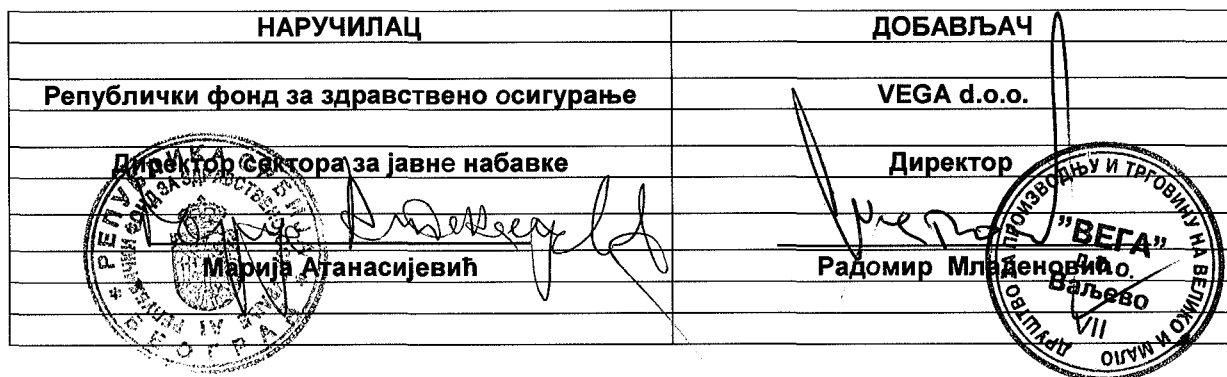 НАРУЧИЛАЦ
ДОБАВЉАЧ
Републички фонд за здравствено осигурање
VEGA d.o.o.
Директор сектора за јавне набавке
Директор
Марија Атанасијевић
Радомир Младеновић
РЕПУБЛИКА
ДРУШТВО ЗА ПРОИЗВОДЊУ И ТРГОВИНУ НА ВЕЛИКО И МАЛО
"ВЕГА"
д.о.о.
Ваљево
VII